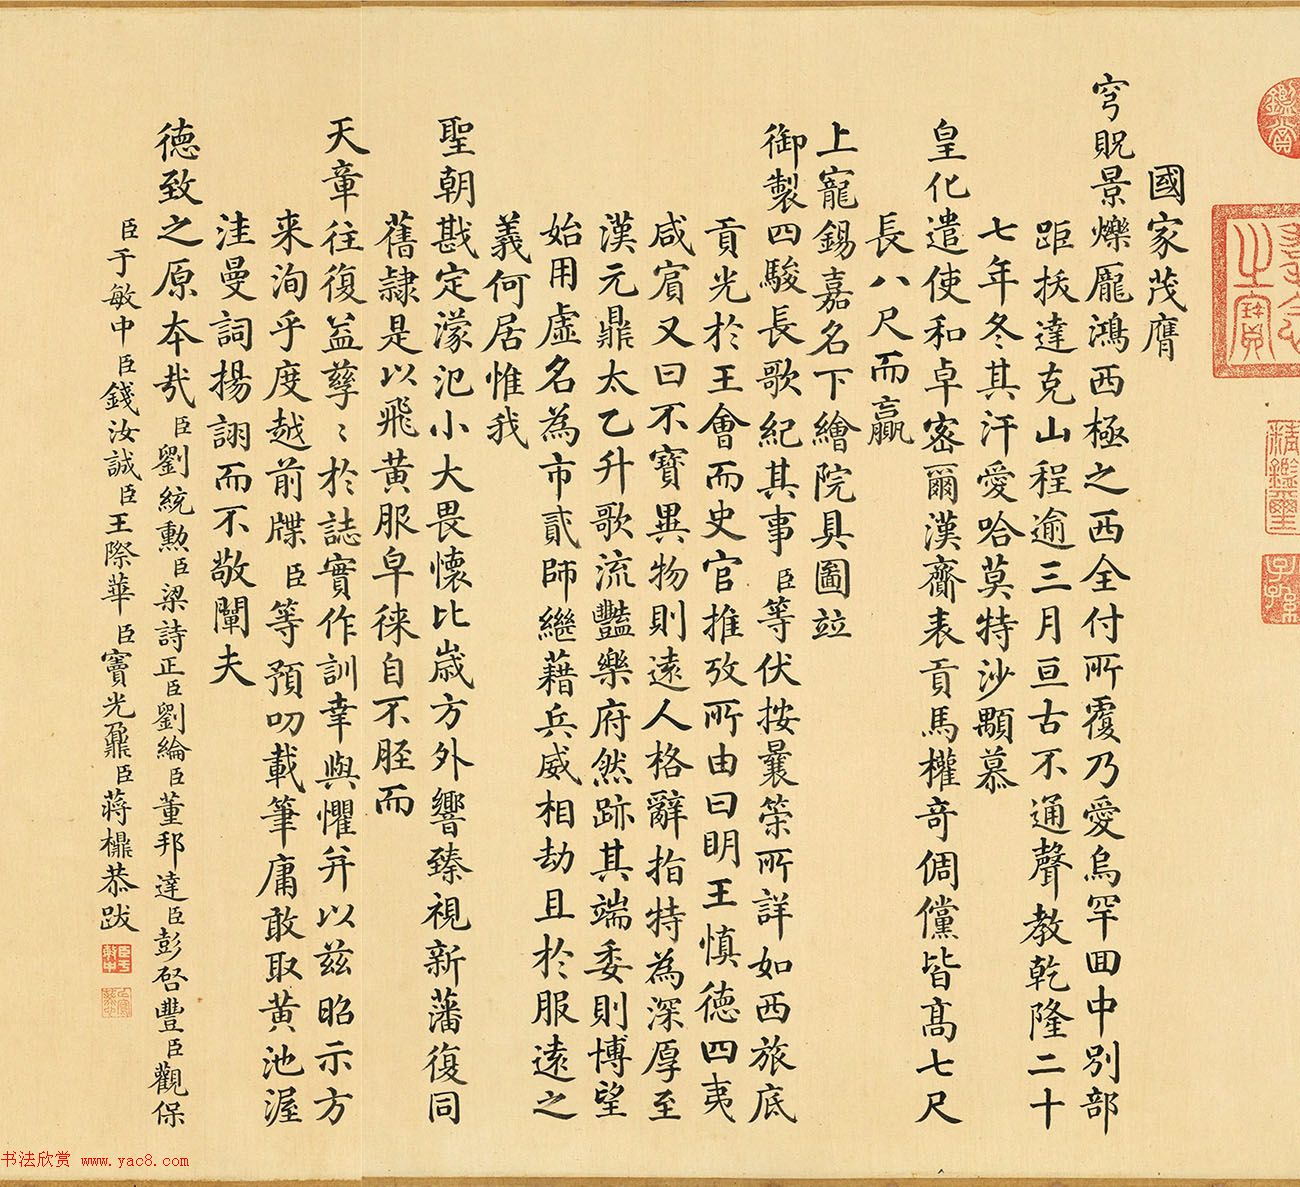 國家茂膺
穹貺景爍龐鴻西極之西全付所覆乃愛烏罕回中別部
距拔達克山程逾三月亘古不通聲教乾隆二十
七年冬其汗愛哈莫特沙顒慕
皇化遣使和卓密爾漢齎表貢馬權奇倜儻皆高七尺
長八尺而贏
上寵錫嘉名下繪院具圖竝
御製四駿長歌紀其事臣等伏按曩筞所詳如西旅底
貢光於王會而史官推攷所由曰明王慎德四夷
咸賓又曰不寶異物則遠人格辭指特為深厚至
漢元鼎太乙升歌流豔樂府然跡其端委則博望
始用虛名為市貳師繼藉兵威相劫且於服遠之
義何居惟我
聖朝戡定濛汜小大畏懷比歲方外響臻視新藩復同
舊隷是以飛黃服皁徠自不脛而
天章往復益孳〻於誌實作訓幸與懼并以茲昭示方
来洵乎度越前牒臣等預叨載筆庸敢取黃池渥
洼曼詞揚詡而不敬闡夫
德致之原本哉臣劉統勲臣梁詩正臣劉綸臣董邦達臣彭啓豐臣觀保
臣于敏中臣錢汝誠臣王際華臣竇光鼐臣蔣檙恭跋
精鑑璽
书法欣赏 www.yac8.com